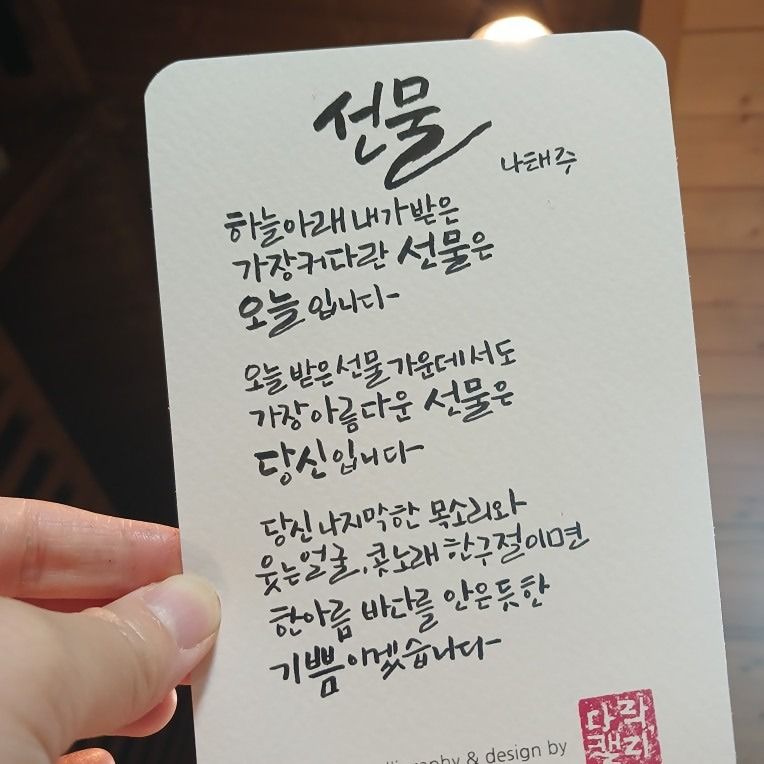 선물
나태주
하늘아래 내가 받은
가장 커다란 선물은
오늘 입니다~
오늘 받은 선물 가운데서도
가장 아름다운 선물은
당신입니다~
당신 나지막한 목소리와
웃는얼굴, 콧노래 한구절이면
한아름 바다를 안은듯한
기쁨이겠습니다~
& design by
다락
캘리